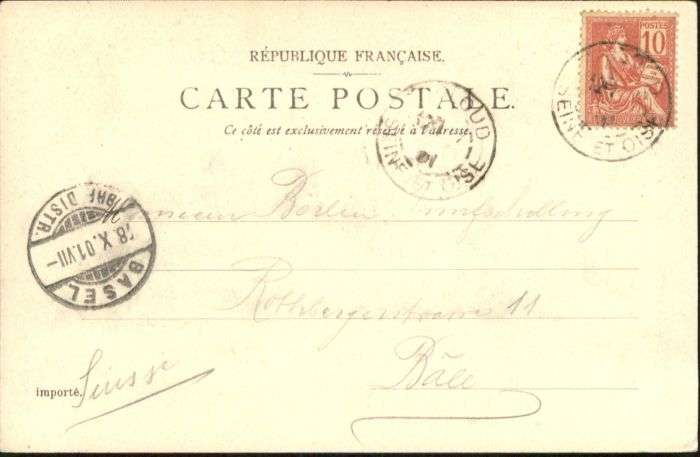 POSTES
10
RÉPUBLIQUE FRANÇAISE.
CARTE POSTALE.
Ce côté est exclusivement réservé à l'adresse.
SEINE ET OISE
SEINE ET OISE
BRF. DISTR.
X. 01. VII-
BASEL
Monsieur
Rothbergerstrasse 11
Bâle
importé. Suisse